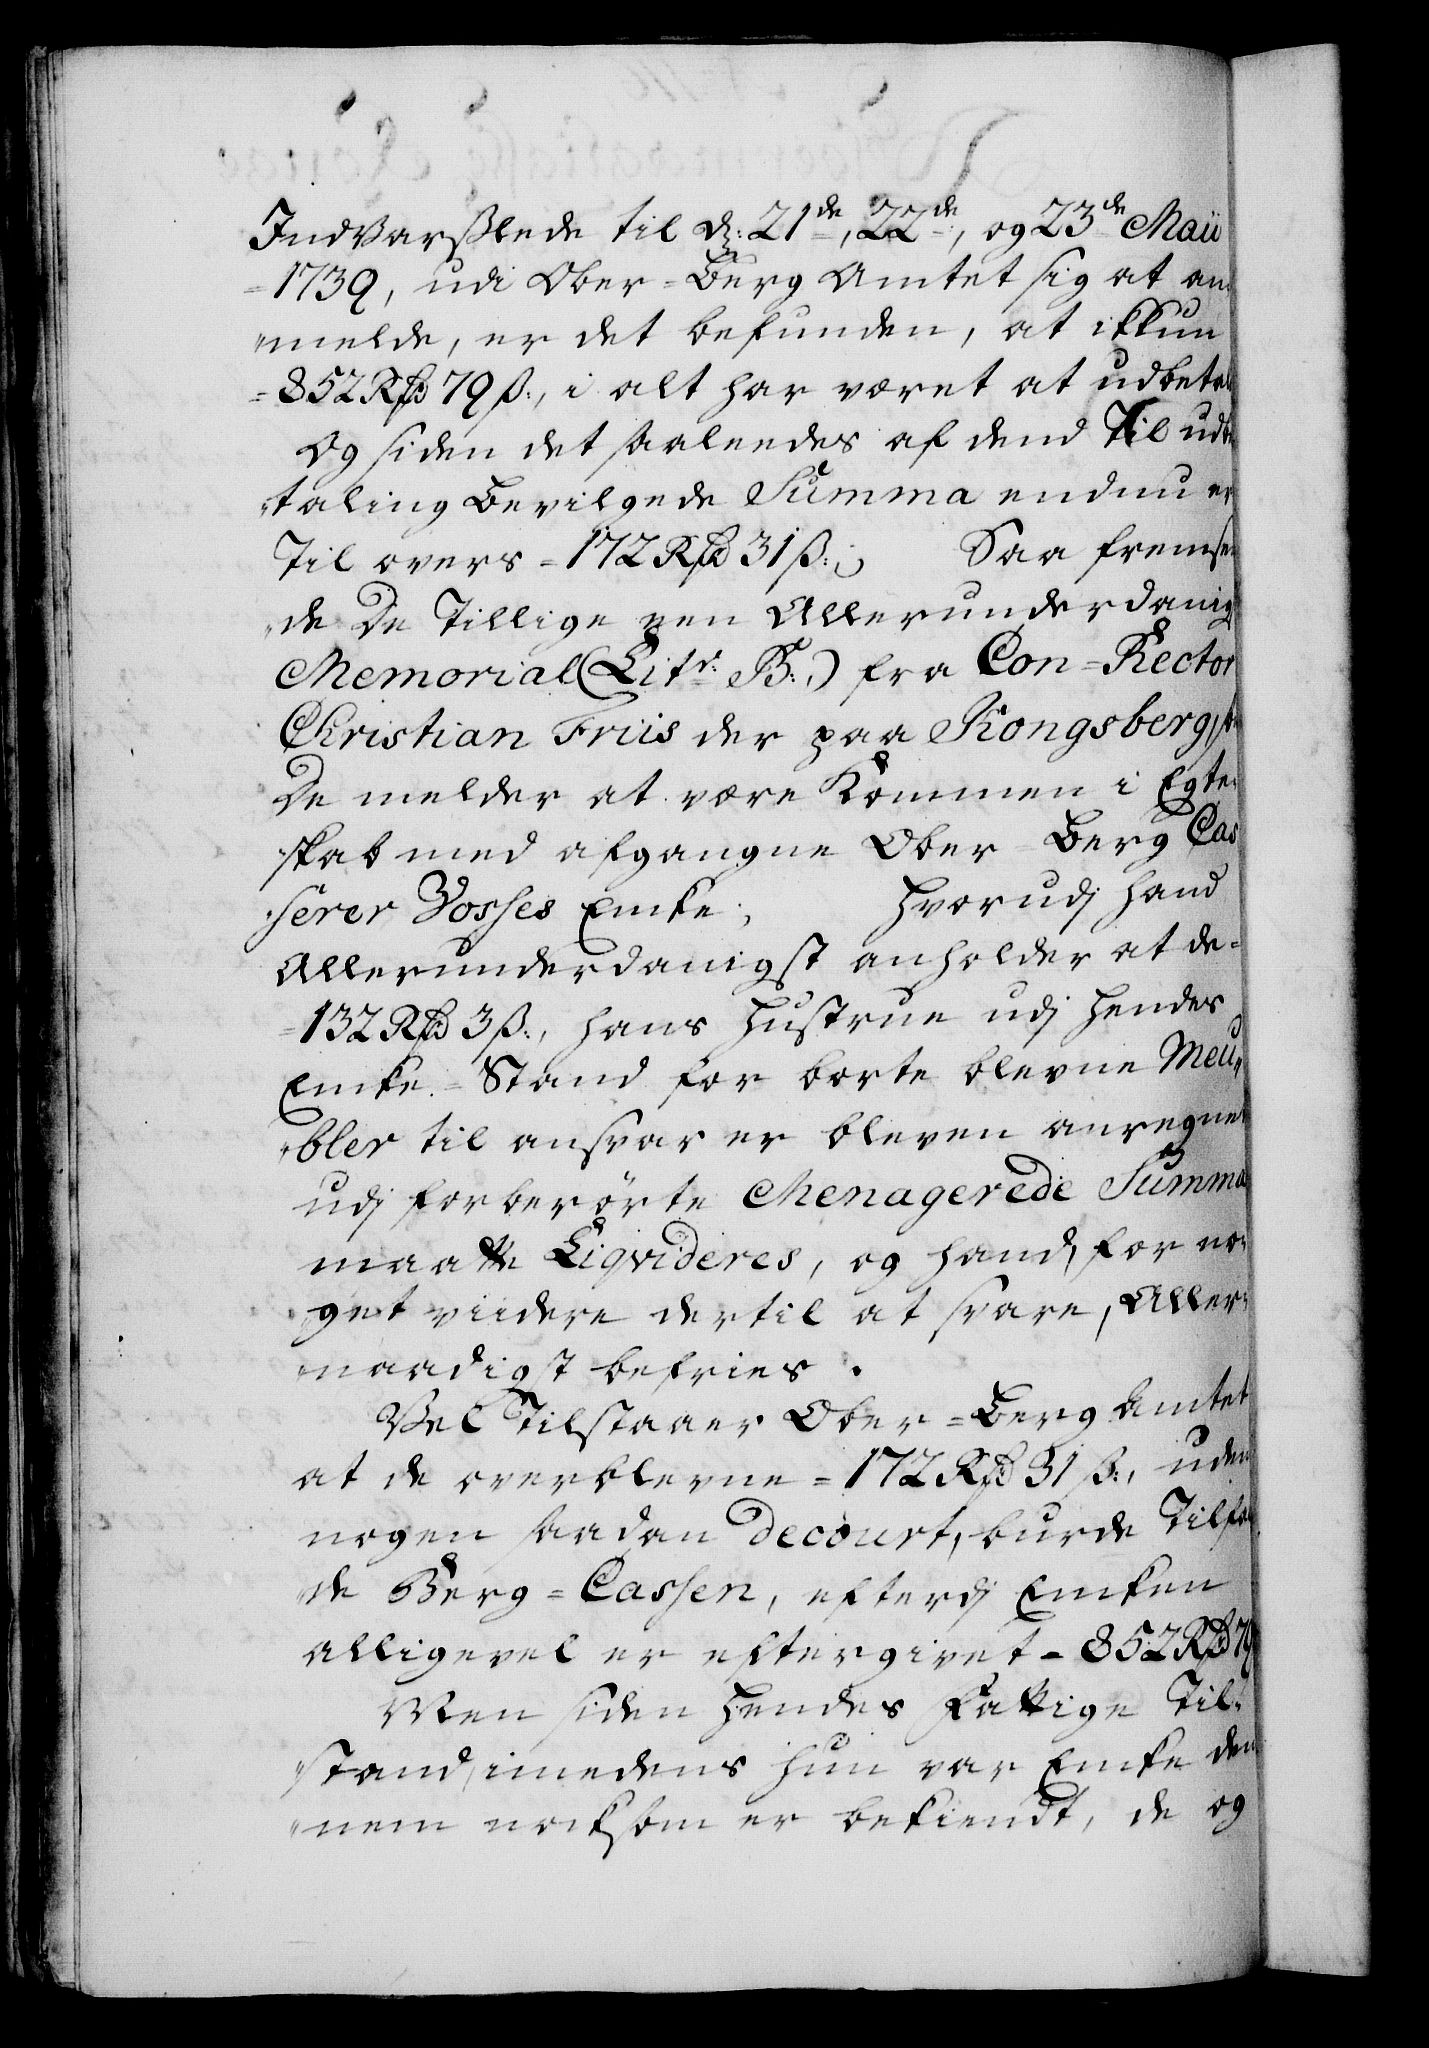 IndVarslede til d: 21de, 22de, og 23de Maii
=1739, udi Ober=Berg Amtet sig at an¬
melde, er det befunden, at ikkun
=852 Rd 79 ß:, i alt har været at udbetale
Og siden det saaleedes af dend Til udbe¬
taling Bevilgede Summa endnu er
Til overs =172 Rd 31 ß:; Saa fremsen¬
de De Tillige een Allerunderdanig
Memorial (Litr: B:) fra Con=Rector
Christian Friis der paa Kongsberg, som
De melder at være Kommen i Egte¬
skab med afgangne Ober=Berg Cas¬
serer Vosses Encke; Hvorudj hand
Allerunderdanigst anholder at de=
=132 Rd 3 ß:, hans Hustrue udj Hendes
Encke=Stand for borte blevne Meu¬
bler til ansvar er bleven anregnet
udj forberørte Menagerede Summa
maatte Liqvideres, og hand, for no¬
get viidere dertil at svare, Aller¬
naadigst befries.
Vel Tilstaaer Ober=Berg Amtet
at de overblevne =172 Rd 31 ß:, uden
nogen saadan Decourt, burde Tilfal¬
de Berg=Cassen, efterdj Encken
alligevel er eftergivet =852 Rd 79
Men siden Hendes Fattige Til¬
stand, imedens hun var Encke den¬
nem nocksom er bekiendt, de og